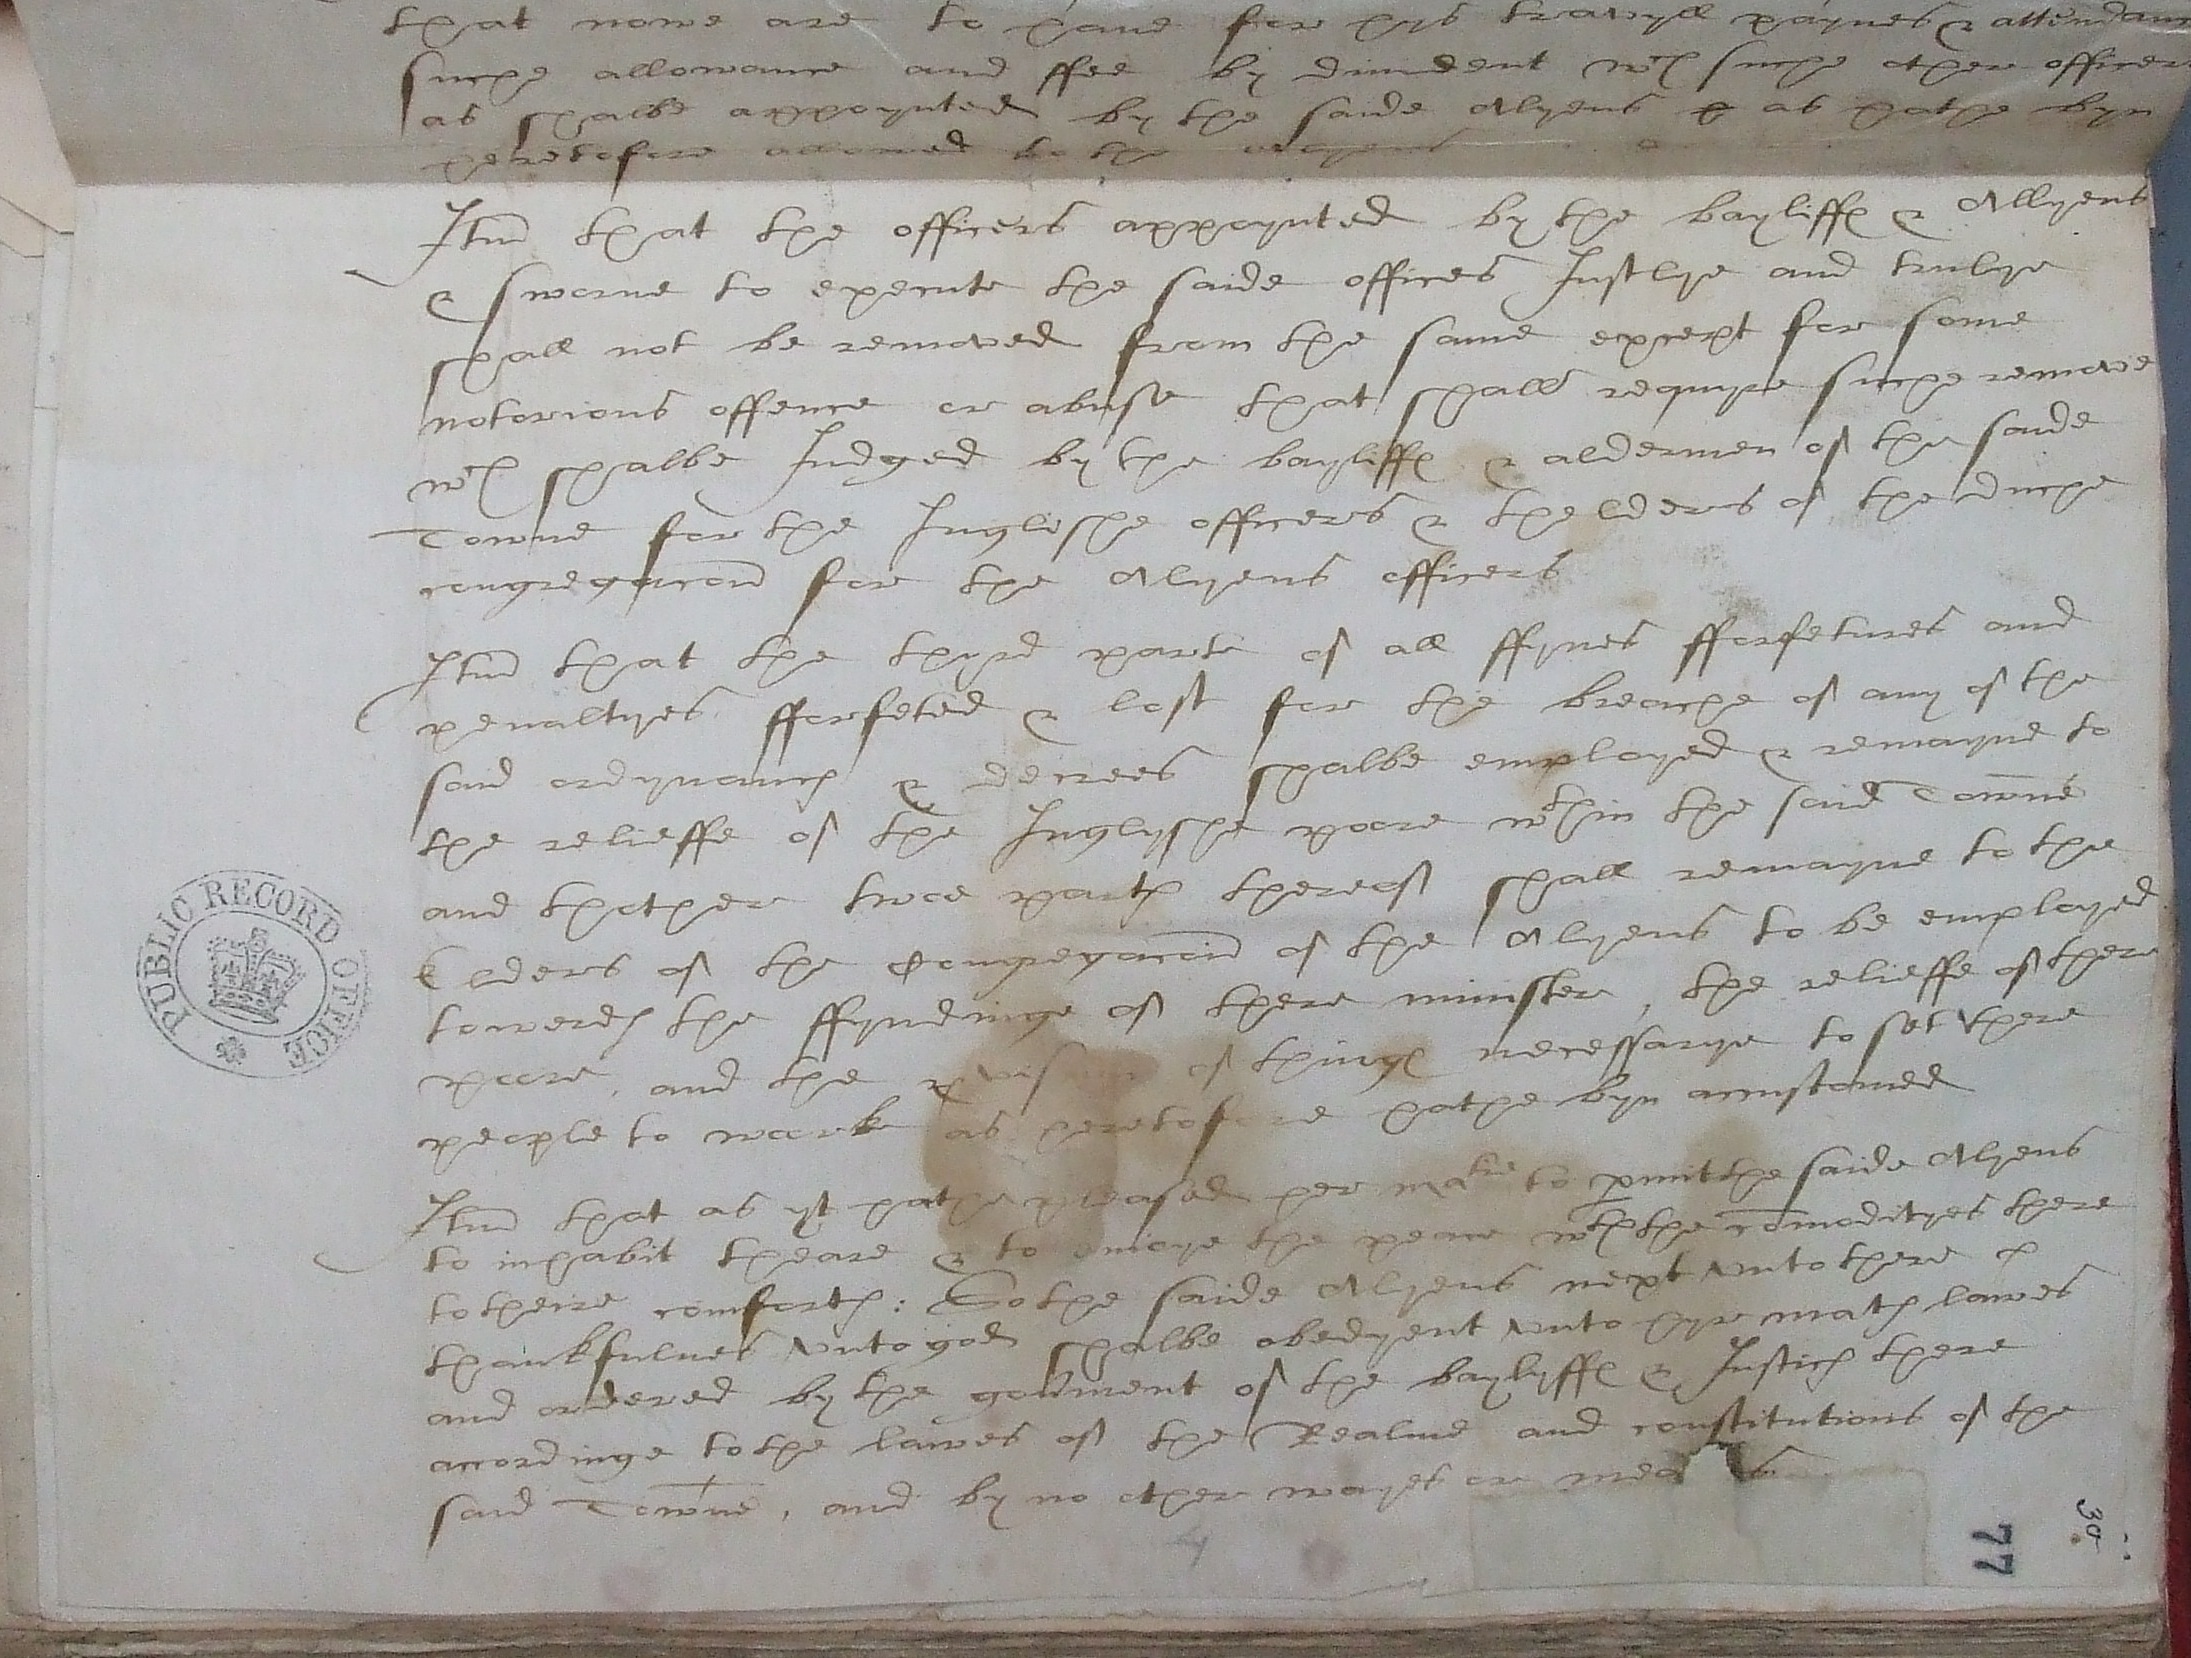 that nowe are to have for hys travyll paynes & attendanc
suche allowance and ffee by divident wch suche other officers
as shalbe appoynted by the saide Alyens & as hathe byn
heretofore allowed to the Alyens
Itm that the officers appoynted by the bayliffs & Allyens
& sworne to execute the saide offices Justlye and trulye
shall not be removed from the same except for some
notorious offence or abuse that shall requyre suche remove
wch shalbe Judged by the bayliffs & aldermen of the saide
Towne for the Inglishe officers & thelders of the duche
congregacon for the Alyens officers
Itm that the thyrd parte of all ffynes fforfetures and
penaltyes fforfeted & lost for the breache of any of the
said ordynancs & decrees shalbe employed & remayne to
the relieffe of the Inglyshe poore wthin the said Towne
and thother twoe parts thereof shall remayne to the
Elders of the Congregacon of the Alyens to be employed
towerds the ffyndinge of there minister, the relieffe of there
poore, and the of things necessarye to set there
people to woork as heretofore hathe byn accustomed
Itm that as yt hathe pleased her matie to pmit the saide Alyens
to inhabit theare & to enioye the peace wth the comodityes there
to theire comforts: So the saide Alyens next unto there
thankfulnes unto god shalbe obedyent unto hyr mats lawes
and ordered by the govment of the baylyffs & Justics there
accordinge to the lawes of the Realme and constitutions of the
said Towne, and by no other wayes or means
PUBLIC RECORD OFFICE
77
30